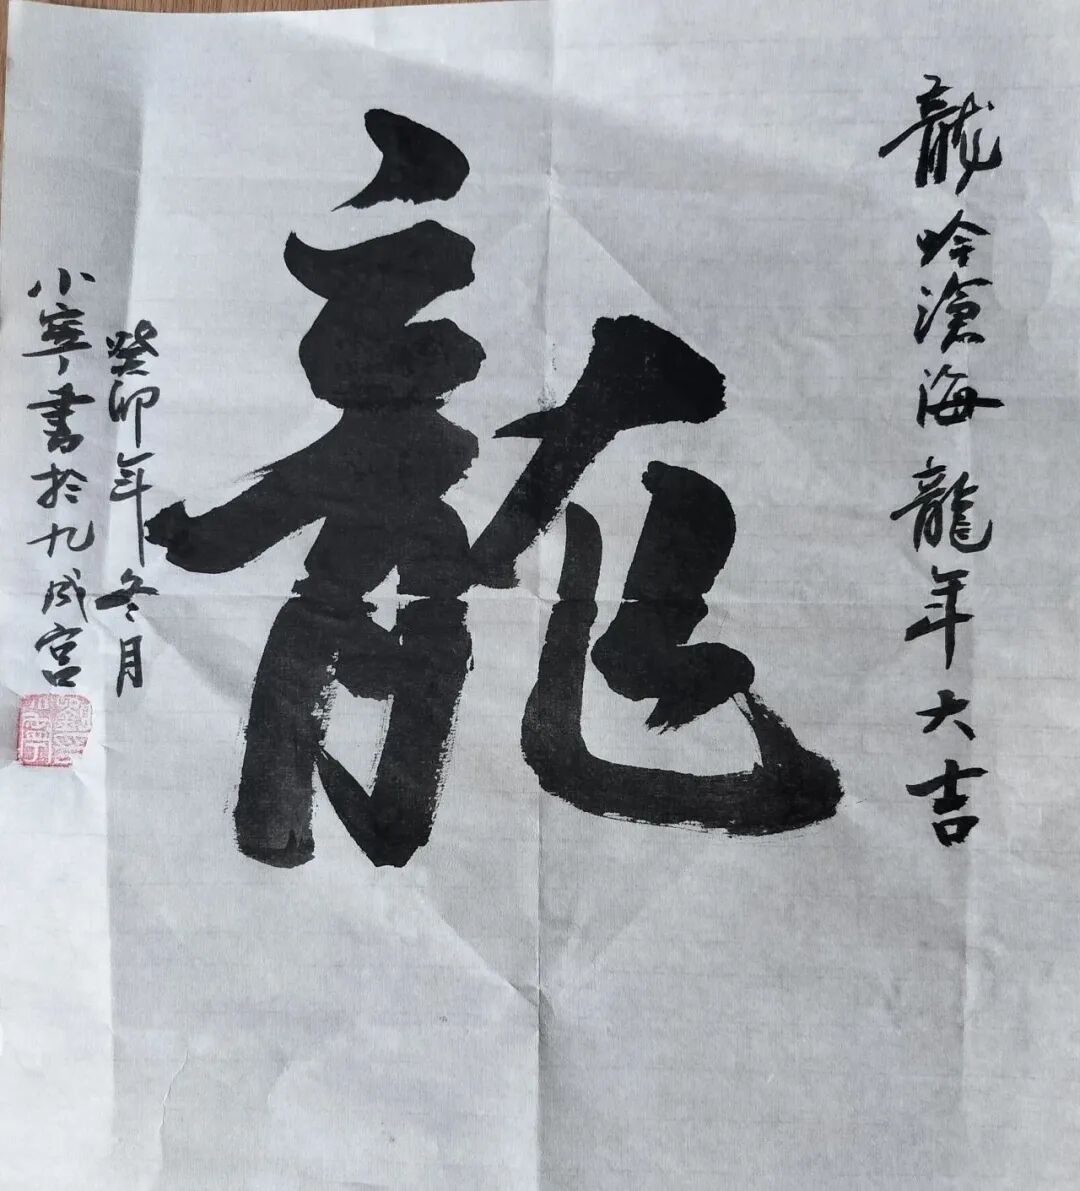 龍吟滄海龍年大吉
龍
癸卯年冬月
小寧書於九成宮